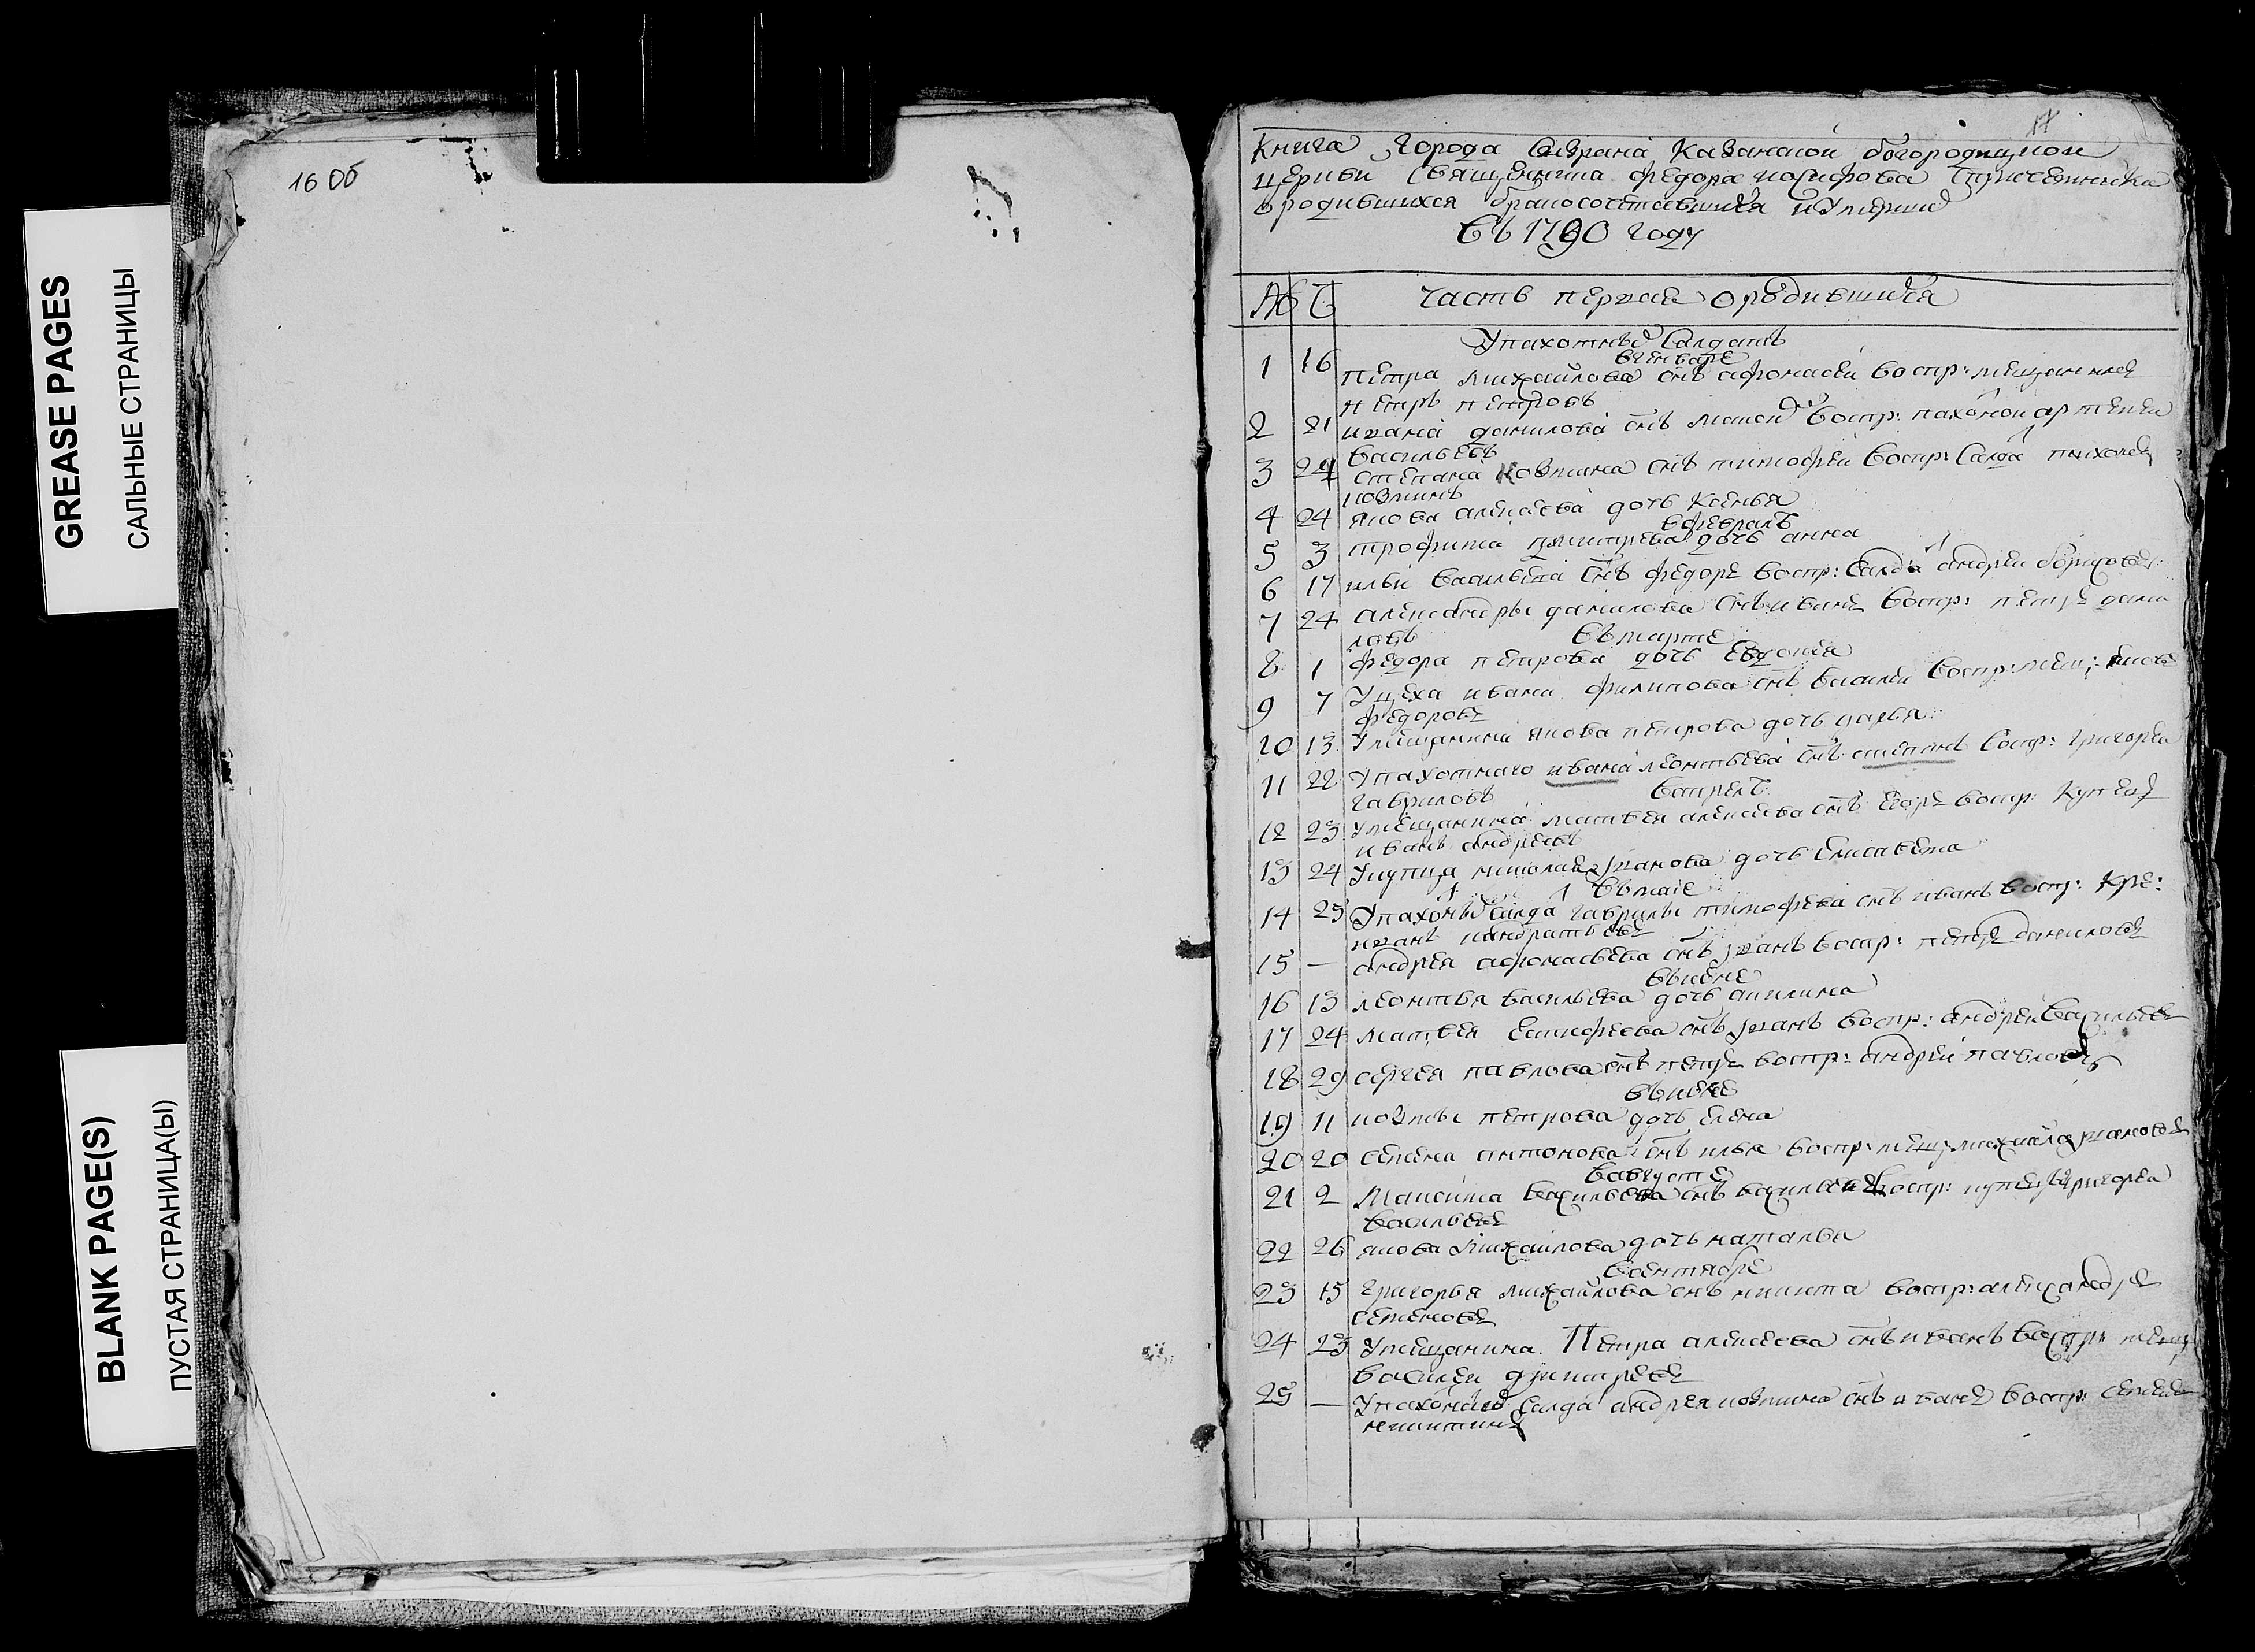 GREASE PAGES
САЛЬНЫЕ СТРАНИЦЫ
BLANK PAGE(S)
ПУСТАЯ СТРАНИЦА(Ы)
16 об
17
Книга города Сызрана Казанской богородицкой
церкви священника федора иосифова
о родившихся бракосочетавшихся и умерших
въ 1790 году
№ Ч часть первая о родившихся
У пахотных салдатъ
в генваре
1 16 петра михайлова снъ афонасей воспр: мещанинъ
петръ петровъ
2 21 ивана данилова снъ воспр: пахотной артемей
васильевъ
3 24 степана козмина снъ тимофей воспр: салда
козминъ
4 24 якова алексеева дочь ксенья
в феврале
5 3 трофима дмитрева дочь анна
6 17 ильи васильева снъ федоръ воспр: салда андрей борисовъ
7 24 александры данилова снъ иванъ воспр: петръ дани
ловъ въ марте
8 1 федора петрова дочь евдокея
9 7 У цеха ивана филипова снъ василей воспр: мещ: яковъ
федоровъ
10 13 У мещанина якова петрова дочь дарья
11 22 У пахотнаго ивана леонтьева снъ степанъ воспр: григорей
гавриловъ в апреле
12 23 У мещанина матвея алексеева снъ егоръ воспр: купецъ
иванъ андреевъ
13 24 У купца николая иванова дочь елисавета
въ мае
14 25 У пахотных салда гаврилы тимофева снъ иванъ воспр: кре:
иванъ кандратьевъ
15 — андрея афонасьева снъ иванъ воспр: петръ даниловъ
в июне
16 13 леонтья васильева дочь акилина
17 24 матвея снъ иванъ воспр: андрей васильевъ
18 29 сергея павлова снъ петръ воспр: андрей павловъ
в июле
19 11 козмы петрова дочь елена
20 20 семена антонова снъ илья воспр: мещ: михайла ивановъ
в августе
21 2 Максима васильева снъ василей воспр: купецъ григорей
васильевъ
22 26 якова михайлова дочь наталья
в сентябре
23 15 григорья михайлова снъ никита воспр: александръ
семеновъ
24 23 У мещанина Петра алексеева снъ иванъ воспр: мещ:
василей дмитревъ
25 — У пахотнаго салда андрея козмина снъ иванъ воспр: семенъ
никитинъ